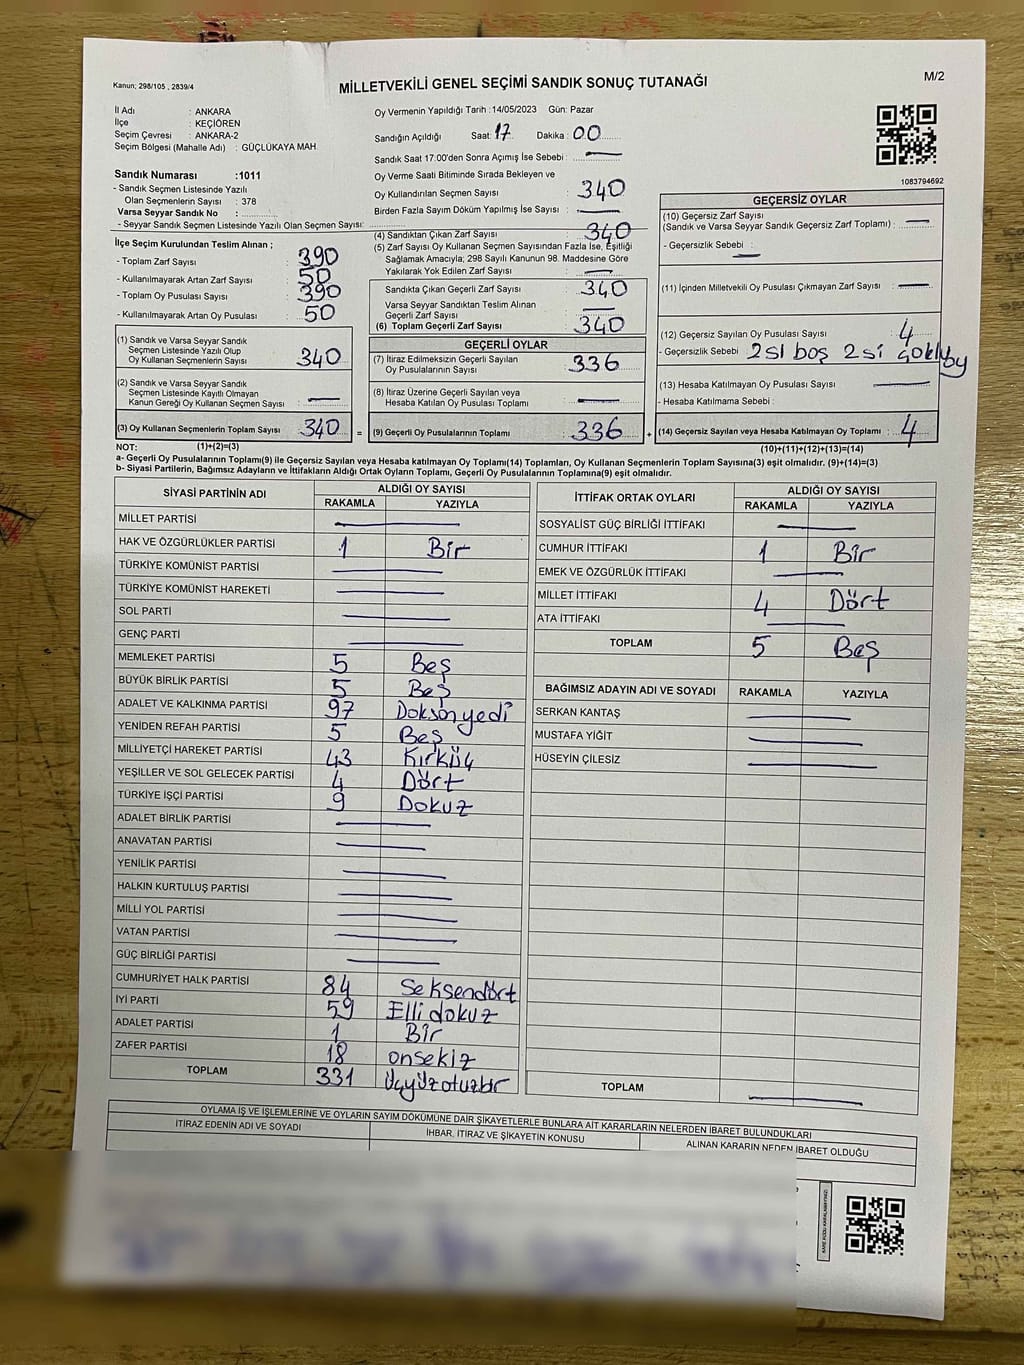 Kanun; 298/105 , 2839/4
MİLLETVEKİLİ GENEL SEÇİMİ SANDIK SONUÇ TUTANAĞI
M/2
İl Adı : ANKARA
İlçe : KEÇİÖREN
Seçim Çevresi : ANKARA-2
Seçim Bölgesi (Mahalle Adı) : GÜÇLÜKAYA MAH.
Sandık Numarası :1011
- Sandık Seçmen Listesinde Yazılı
Olan Seçmenlerin Sayısı : 378
Varsa Seyyar Sandık No :
- Seyyar Sandık Seçmen Listesinde Yazılı Olan Seçmen Sayısı:
İlçe Seçim Kurulundan Teslim Alınan ;
- Toplam Zarf Sayısı : 390
- Kullanılmayarak Artan Zarf Sayısı : 50
- Toplam Oy Pusulası Sayısı : 390
- Kullanılmayarak Artan Oy Pusulası : 50
(1) Sandık ve Varsa Seyyar Sandık
Seçmen Listesinde Yazılı Olup
Oy Kullanan Seçmenlerin Sayısı : 340
(2) Sandık ve Varsa Seyyar Sandık
Seçmen Listesinde Kayıtlı Olmayan
Kanun Gereği Oy Kullanan Seçmen Sayısı :
(3) Oy Kullanan Seçmenlerin Toplam Sayısı : 340 =
Oy Vermenin Yapıldığı Tarih :14/05/2023 Gün: Pazar
Sandığın Açıldığı Saat: 17 Dakika : 00
Sandık Saat 17:00'den Sonra Açımış İse Sebebi :
Oy Verme Saati Bitiminde Sırada Bekleyen ve
Oy Kullandırılan Seçmen Sayısı : 340
Birden Fazla Sayım Döküm Yapılmış İse Sayısı :
(4) Sandıktan Çıkan Zarf Sayısı : 340
(5) Zarf Sayısı Oy Kullanan Seçmen Sayısından Fazla İse, Eşitliği
Sağlamak Amacıyla; 298 Sayılı Kanunun 98. Maddesine Göre
Yakılarak Yok Edilen Zarf Sayısı :
Sandıkta Çıkan Geçerli Zarf Sayısı : 340
Varsa Seyyar Sandıktan Teslim Alınan
Geçerli Zarf Sayısı :
(6) Toplam Geçerli Zarf Sayısı : 340
GEÇERLİ OYLAR
(7) İtiraz Edilmeksizin Geçerli Sayılan
Oy Pusulalarının Sayısı : 336
(8) İtiraz Üzerine Geçerli Sayılan veya
Hesaba Katılan Oy Pusulası Toplamı :
(9) Geçerli Oy Pusulalarının Toplamı : 336 +
1083794692
GEÇERSİZ OYLAR
(10) Geçersiz Zarf Sayısı
(Sandık ve Varsa Seyyar Sandık Geçersiz Zarf Toplamı) :
- Geçersizlik Sebebi :
(11) İçinden Milletvekili Oy Pusulası Çıkmayan Zarf Sayısı :
(12) Geçersiz Sayılan Oy Pusulası Sayısı : 4
- Geçersizlik Sebebi : 2si boş 2si çoklu oy
(13) Hesaba Katılmayan Oy Pusulası Sayısı :
- Hesaba Katılmama Sebebi :
(14) Geçersiz Sayılan veya Hesaba Katılmayan Oy Toplamı : 4
NOT: (1)+(2)=(3)
(10)+(11)+(12)+(13)=(14)
a- Geçerli Oy Pusulalarının Toplamı(9) ile Geçersiz Sayılan veya Hesaba katılmayan Oy Toplamı(14) Toplamları, Oy Kullanan Seçmenlerin Toplam Sayısına(3) eşit olmalıdır. (9)+(14)=(3)
b- Siyasi Partilerin, Bağımsız Adayların ve İttifakların Aldığı Ortak Oyların Toplamı, Geçerli Oy Pusulalarının Toplamına(9) eşit olmalıdır.
SİYASİ PARTİNİN ADI
ALDIĞI OY SAYISI
RAKAMLA YAZIYLA
MİLLET PARTİSİ
HAK VE ÖZGÜRLÜKLER PARTİSİ 1 Bir
TÜRKİYE KOMÜNİST PARTİSİ
TÜRKİYE KOMÜNİST HAREKETİ
SOL PARTİ
GENÇ PARTİ
MEMLEKET PARTİSİ 5 Beş
BÜYÜK BİRLİK PARTİSİ 5 Beş
ADALET VE KALKINMA PARTİSİ 97 Doksanyedi
YENİDEN REFAH PARTİSİ 5 Beş
MİLLİYETÇİ HAREKET PARTİSİ 43 Kırküç
YEŞİLLER VE SOL GELECEK PARTİSİ 4 Dört
TÜRKİYE İŞÇİ PARTİSİ 9 Dokuz
ADALET BİRLİK PARTİSİ
ANAVATAN PARTİSİ
YENİLİK PARTİSİ
HALKIN KURTULUŞ PARTİSİ
MİLLİ YOL PARTİSİ
VATAN PARTİSİ
GÜÇ BİRLİĞİ PARTİSİ
CUMHURİYET HALK PARTİSİ 84 Seksendört
İYİ PARTİ 59 Elli dokuz
ADALET PARTİSİ 1 Bir
ZAFER PARTİSİ 18 onsekiz
TOPLAM 331 Üçyüzotuzbir
İTTİFAK ORTAK OYLARI
ALDIĞI OY SAYISI
RAKAMLA YAZIYLA
SOSYALİST GÜÇ BİRLİĞİ İTTİFAKI
CUMHUR İTTİFAKI 1 Bir
EMEK VE ÖZGÜRLÜK İTTİFAKI
MİLLET İTTİFAKI 4 Dört
ATA İTTİFAKI
TOPLAM 5 Beş
BAĞIMSIZ ADAYIN ADI VE SOYADI RAKAMLA YAZIYLA
SERKAN KANTAŞ
MUSTAFA YİĞİT
HÜSEYİN ÇİLESİZ
TOPLAM
OYLAMA İŞ VE İŞLEMLERİNE VE OYLARIN SAYIM DÖKÜMÜNE DAİR ŞİKAYETLERLE BUNLARA AİT KARARLARIN NELERDEN İBARET BULUNDUKLARI
İTİRAZ EDENİN ADI VE SOYADI İHBAR, İTİRAZ VE ŞİKAYETİN KONUSU ALINAN KARARIN NEDEN İBARET OLDUĞU